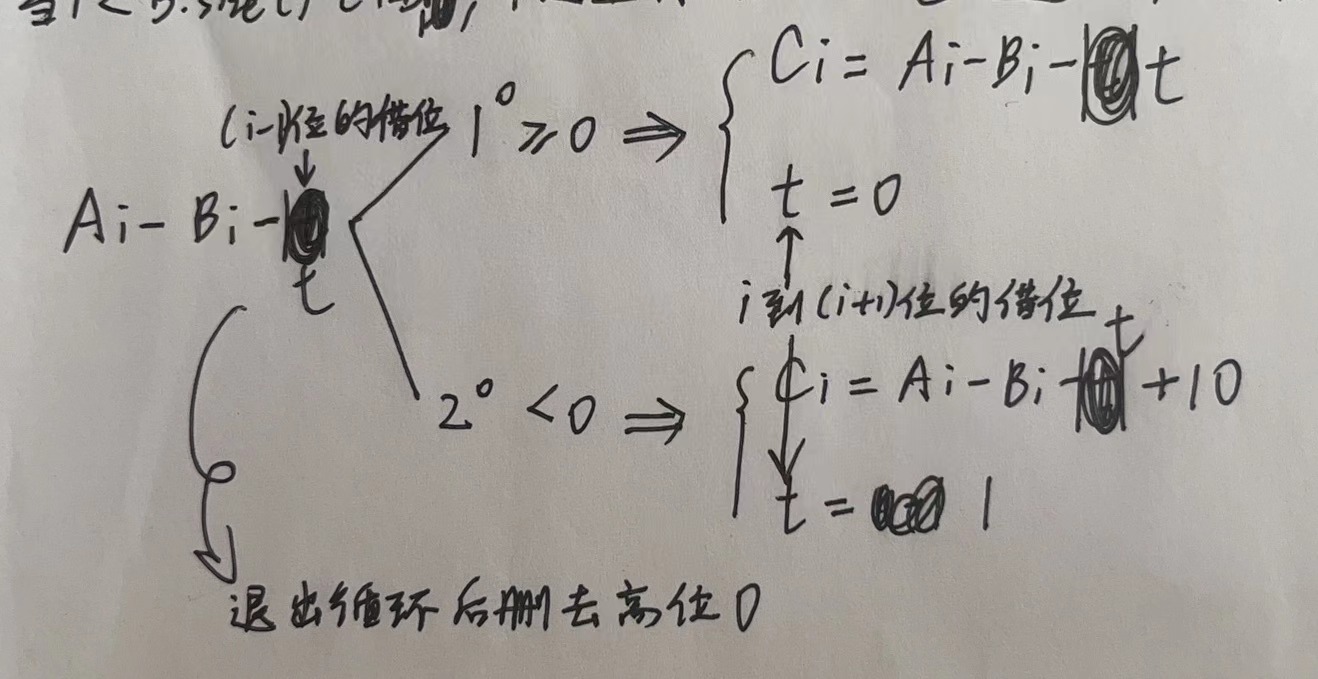 当i < B.size()
(i-1)位的借位
Ai - Bi - t
1° ≥ 0 ⇒ { Ci = Ai - Bi - t
t = 0
i到(i+1)位的借位
2° < 0 ⇒ { Ci = Ai - Bi - t + 10
t = 1
退出循环后删去高位0